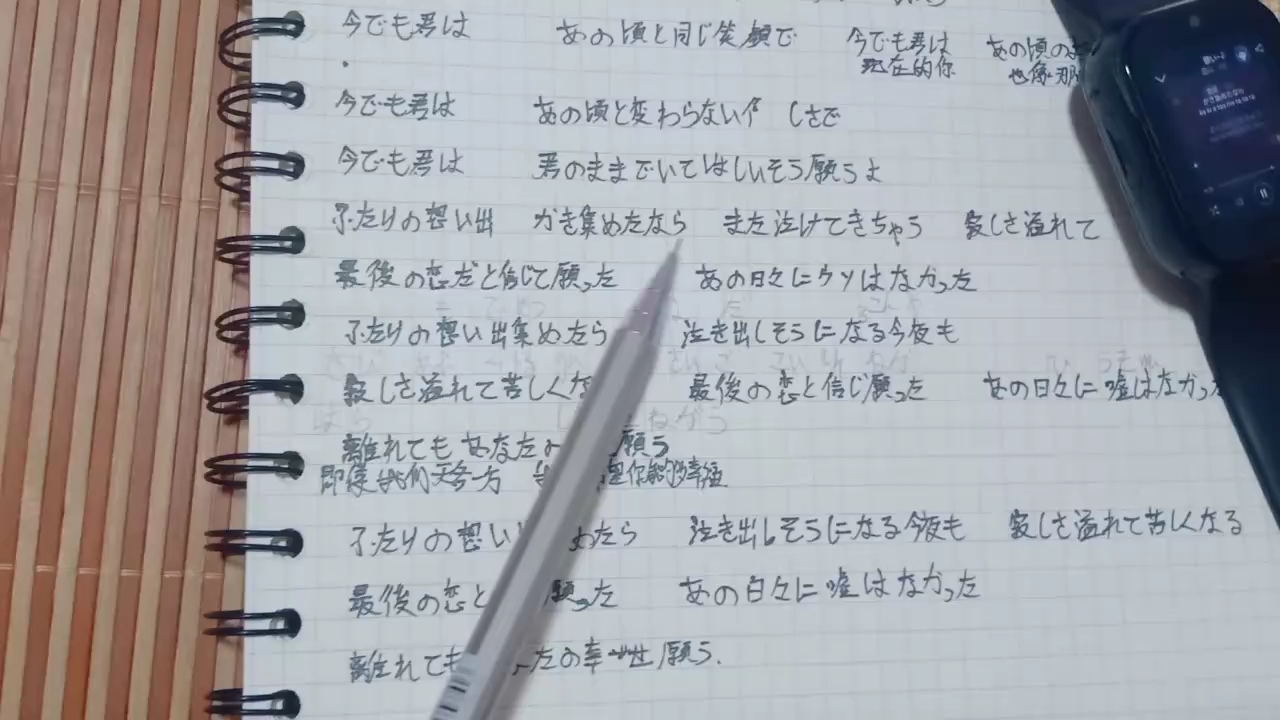 今でも君は　あの頃と同じ笑顔で　今でも君は　あの頃の
現在的你　也像那
今でも君は　あの頃と変わらない　しさで
今でも君は　君のままでいてほしいそう願うよ
ふたりの想い出　かき集めたなら　また泣けてきちゃう　寂しさ溢れて
最後の恋だと信じて願った　あの日々にウソはなかった
ふたりの想い出集めたら　泣き出しそうになる今夜も
寂しさ溢れて苦しくな　最後の恋と信じ願った　あの日々に嘘はなかった
離れてもあなた　願う
即使我们天各一方　你能够幸福
ふたりの想い　めたら　泣き出しそうになる今夜も　寂しさ溢れて苦しくなる
最後の恋と　願った　あの日々に嘘はなかった
離れても　たの幸せ願う.